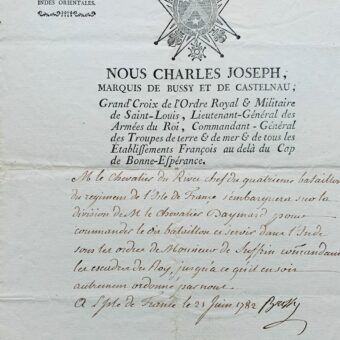 INDES ORIENTALES.
NOUS CHARLES JOSEPH,
MARQUIS DE BUSSY ET DE CASTELNAU;
Grand'Croix de l'Ordre Royal & Militaire
de Saint-Louis, Lieutenant-Général des
Armées du Roi, Commandant-Général
des Troupes de terre & de mer & de tous les
Etablissements François au delà du Cap
de Bonne-Espérance.
M. le Chevalier du chef du quatrieme bataillon
du regiment de l'Isle de France s'embarquera sur la
division de M. le Chevalier pour
commander le dit bataillon et servir dans l'Inde
sous les ordres de Monsieur de Suffrin commandant
les escadres du Roy, jusqu'a ce qu'il en soit
autrement ordonné par nous.
A l'Isle de France le 21 Juin 1782 Bussy